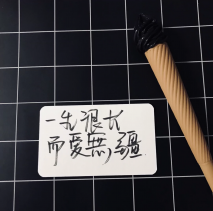 一生很长
而爱無疆